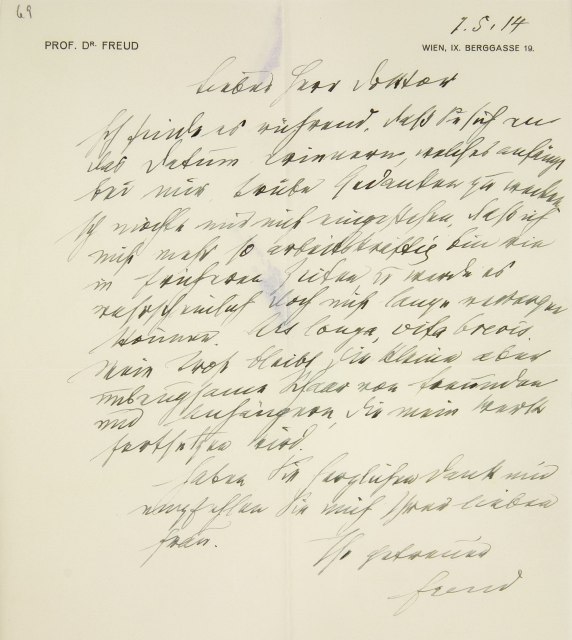 69
7.5.14
PROF. DR. FREUD
WIEN, IX. BERGGASSE 19.
Lieber Herr Doktor
Ich finde es rührend, daß Sie sich an
das Datum erinnern, welches anfängt
bei mir trübe Gedanken zu wecken.
Ich möchte mir nicht eingestehen, daß ich
nicht mehr so arbeitskräftig bin wie
in früheren Zeiten u werde es
wahrscheinlich doch nicht lange verbergen
können. Ars longa, vita brevis.
Mein Trost bleibt, die kleine aber
unbeugsame Schaar von Freunden
und Anhängern, die mein Werk
fortsetzen wird.
Haben Sie herzlichen Dank und
empfehlen Sie mich Ihrer lieben
Frau.
Ihr getreuer
Freud